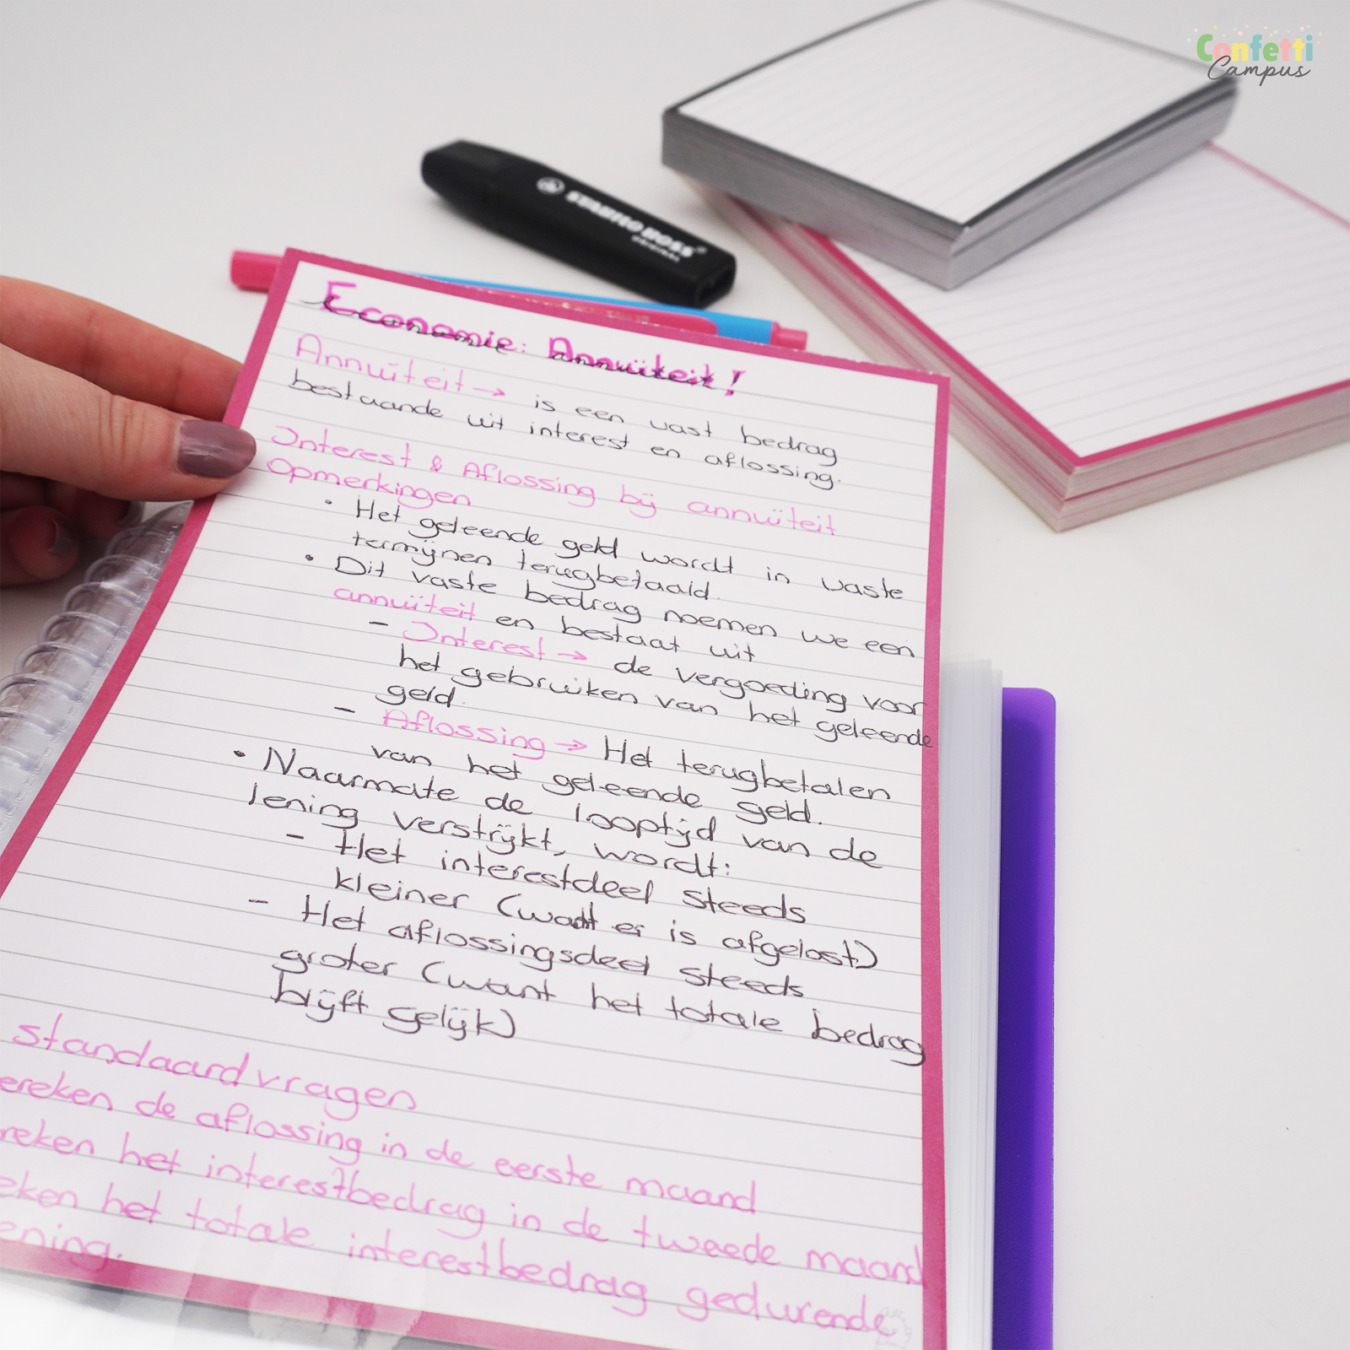 Confetti
Campus
STABILO BOSS
ORIGINAL
Economie: Annuïteit!
Annuïteit → is een vast bedrag
bestaande uit interest en aflossing.
Interest & Aflossing bij annuïteit
Opmerkingen
• Het geleende geld wordt in vaste
termijnen terugbetaald.
• Dit vaste bedrag noemen we een
annuïteit en bestaat uit
- Interest → de vergoeding voor
het gebruiken van het geleende
geld.
- Aflossing → Het terugbetalen
van het geleende geld.
• Naarmate de looptijd van de
lening verstrijkt, wordt:
- Het interestdeel steeds
kleiner (want er is afgelost)
- Het aflossingsdeel steeds
groter (want het totale bedrag
blijft gelijk)
standaardvragen
ereken de aflossing in de eerste maand
reken het interestbedrag in de tweede maand
eken het totale interestbedrag gedurende
ening.